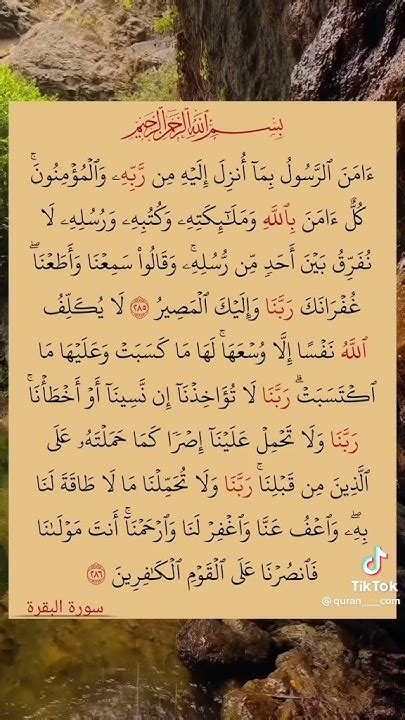 بِسْمِ ٱللَّهِ ٱلرَّحْمَٰنِ ٱلرَّحِيمِ
ءَامَنَ ٱلرَّسُولُ بِمَآ أُنزِلَ إِلَيْهِ مِن رَّبِّهِۦ وَٱلْمُؤْمِنُونَۚ
كُلٌّ ءَامَنَ بِٱللَّهِ وَمَلَٰٓئِكَتِهِۦ وَكُتُبِهِۦ وَرُسُلِهِۦ لَا
نُفَرِّقُ بَيْنَ أَحَدٍ مِّن رُّسُلِهِۦۚ وَقَالُوا۟ سَمِعْنَا وَأَطَعْنَاۖ
غُفْرَانَكَ رَبَّنَا وَإِلَيْكَ ٱلْمَصِيرُ ٢٨٥ لَا يُكَلِّفُ
ٱللَّهُ نَفْسًا إِلَّا وُسْعَهَاۚ لَهَا مَا كَسَبَتْ وَعَلَيْهَا مَا
ٱكْتَسَبَتْۗ رَبَّنَا لَا تُؤَاخِذْنَآ إِن نَّسِينَآ أَوْ أَخْطَأْنَاۚ
رَبَّنَا وَلَا تَحْمِلْ عَلَيْنَآ إِصْرًا كَمَا حَمَلْتَهُۥ عَلَى
ٱلَّذِينَ مِن قَبْلِنَاۚ رَبَّنَا وَلَا تُحَمِّلْنَا مَا لَا طَاقَةَ لَنَا
بِهِۦۖ وَٱعْفُ عَنَّا وَٱغْفِرْ لَنَا وَٱرْحَمْنَآۚ أَنتَ مَوْلَىٰنَا
فَٱنصُرْنَا عَلَى ٱلْقَوْمِ ٱلْكَٰفِرِينَ ٢٨٦
سورة البقرة
TikTok
@quran___com